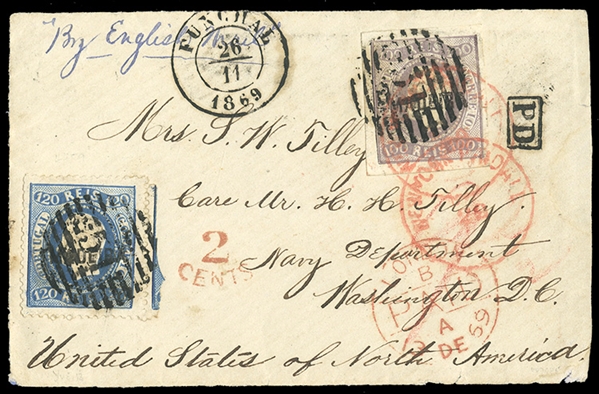 "By English Mail"
FUNCHAL
26
11
1869
100 REIS 100
CORREIO
PD
Mrs. S. W. Tilley
Care Mr. H. H. Tilley.
120 REIS
PORTUGAL
120
2
CENTS
Navy Department
Washington D.C.
LONDON
B
PAID
A
DE 69
United States of North America.